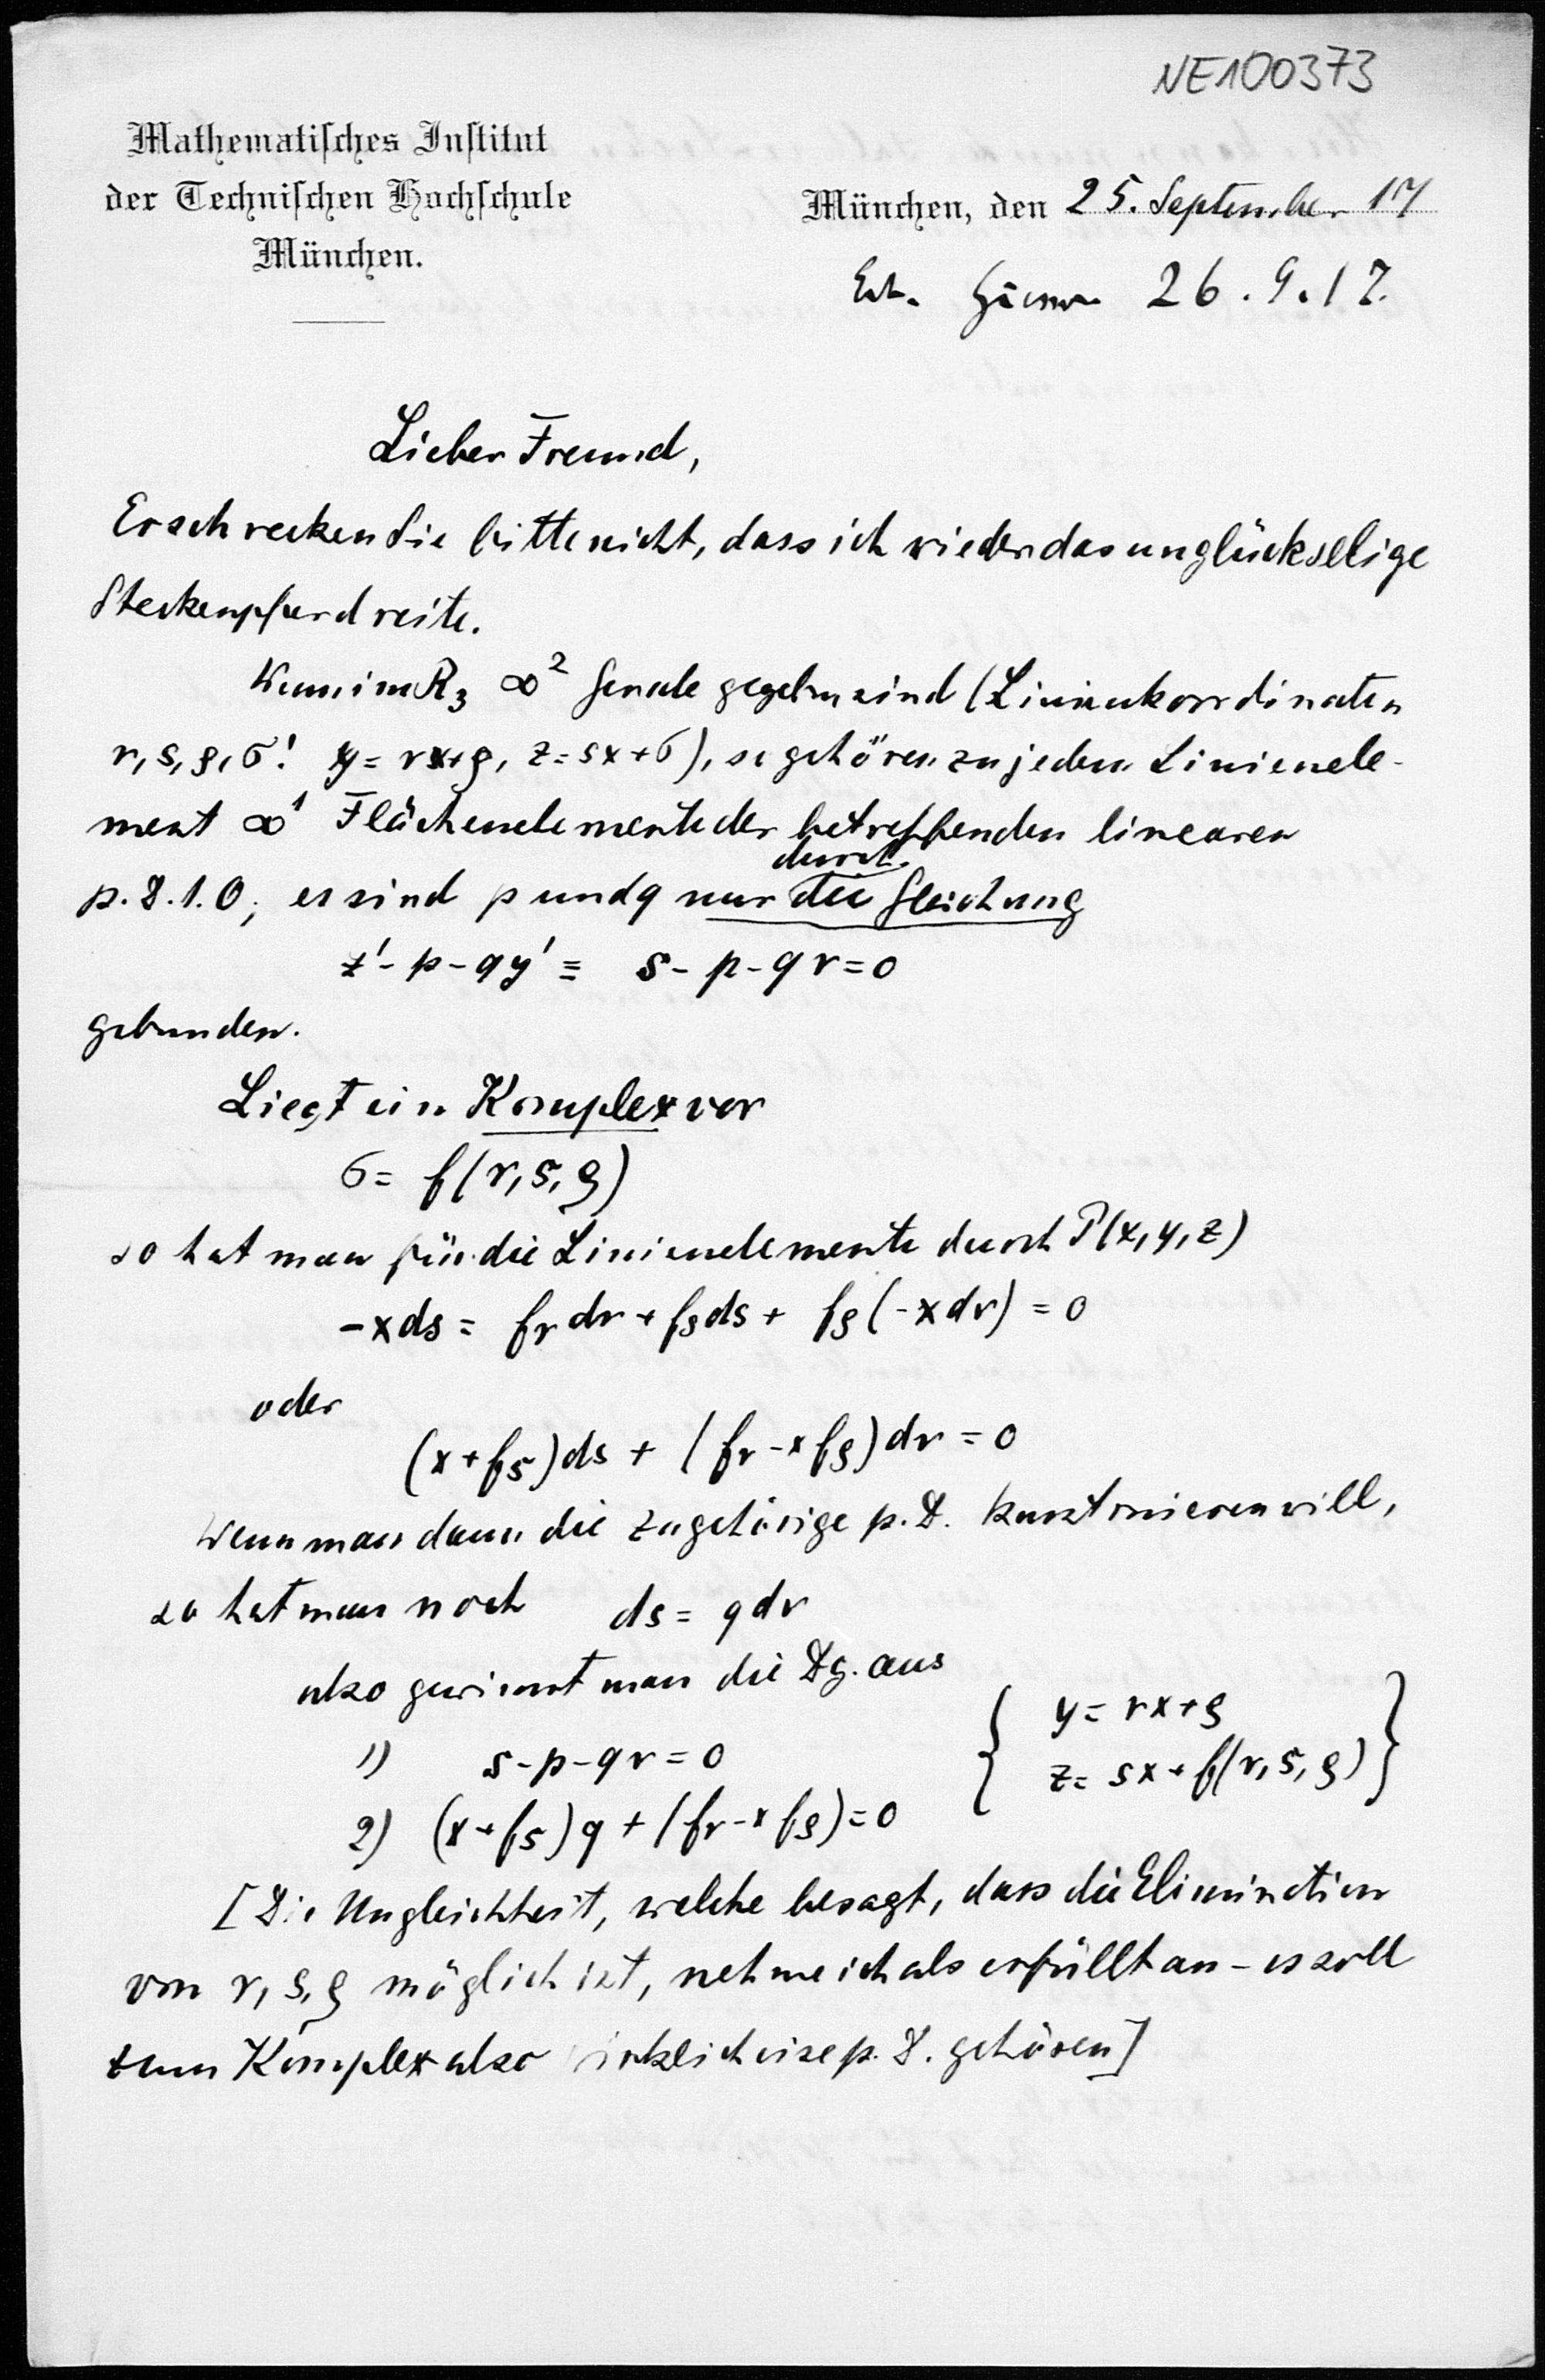 NE100373
Mathematisches Institut
der Technischen Hochschule
München.
München, den 25. September 17
26.9.17.
Lieber Freund,
Erschrecken Sie bitte nicht, dass ich wieder das unglückselige
Steckenpferd reite.
Wenn im R₃ ∞² Gerade gegeben sind (Linienkoordinaten
r, s, ρ, σ: y = rx+ρ, z = sx+σ), so gehören zu jedem Linienele-
ment ∞¹ Flächenelemente der betreffenden linearen
p. D. 1. O; es sind p und q nur durch die Gleichung
z' - p - qy' ≡ s - p - qr = 0
gebunden.
Liegt ein Komplex vor
σ = f(r, s, ρ)
so hat man für die Linienelemente durch P(x, y, z)
-xds = fᵣ dr + fₛ ds + f_ρ (-xdr) = 0
oder
(x + fₛ) ds + (fᵣ - x f_ρ) dr = 0
Wenn man dann die zugehörige p. D. konstruieren will,
so hat man noch ds = q dr
also gewinnt man die Dg. aus
1) s - p - qr = 0 { y = rx + ρ
2) (x + fₛ) q + (fᵣ - x f_ρ) = 0 z = sx + f(r, s, ρ) }
[Die Ungleichheit, welche besagt, dass die Elimination
von r, s, ρ möglich ist, nehme ich als erfüllt an - es soll
zum Komplex also wirklich eine p. D. gehören]